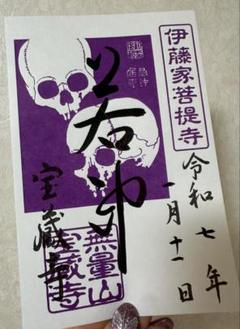 伊藤家菩提寺
令和七年
一月十一日
若冲
無量山
宝蔵寺
宝蔵寺